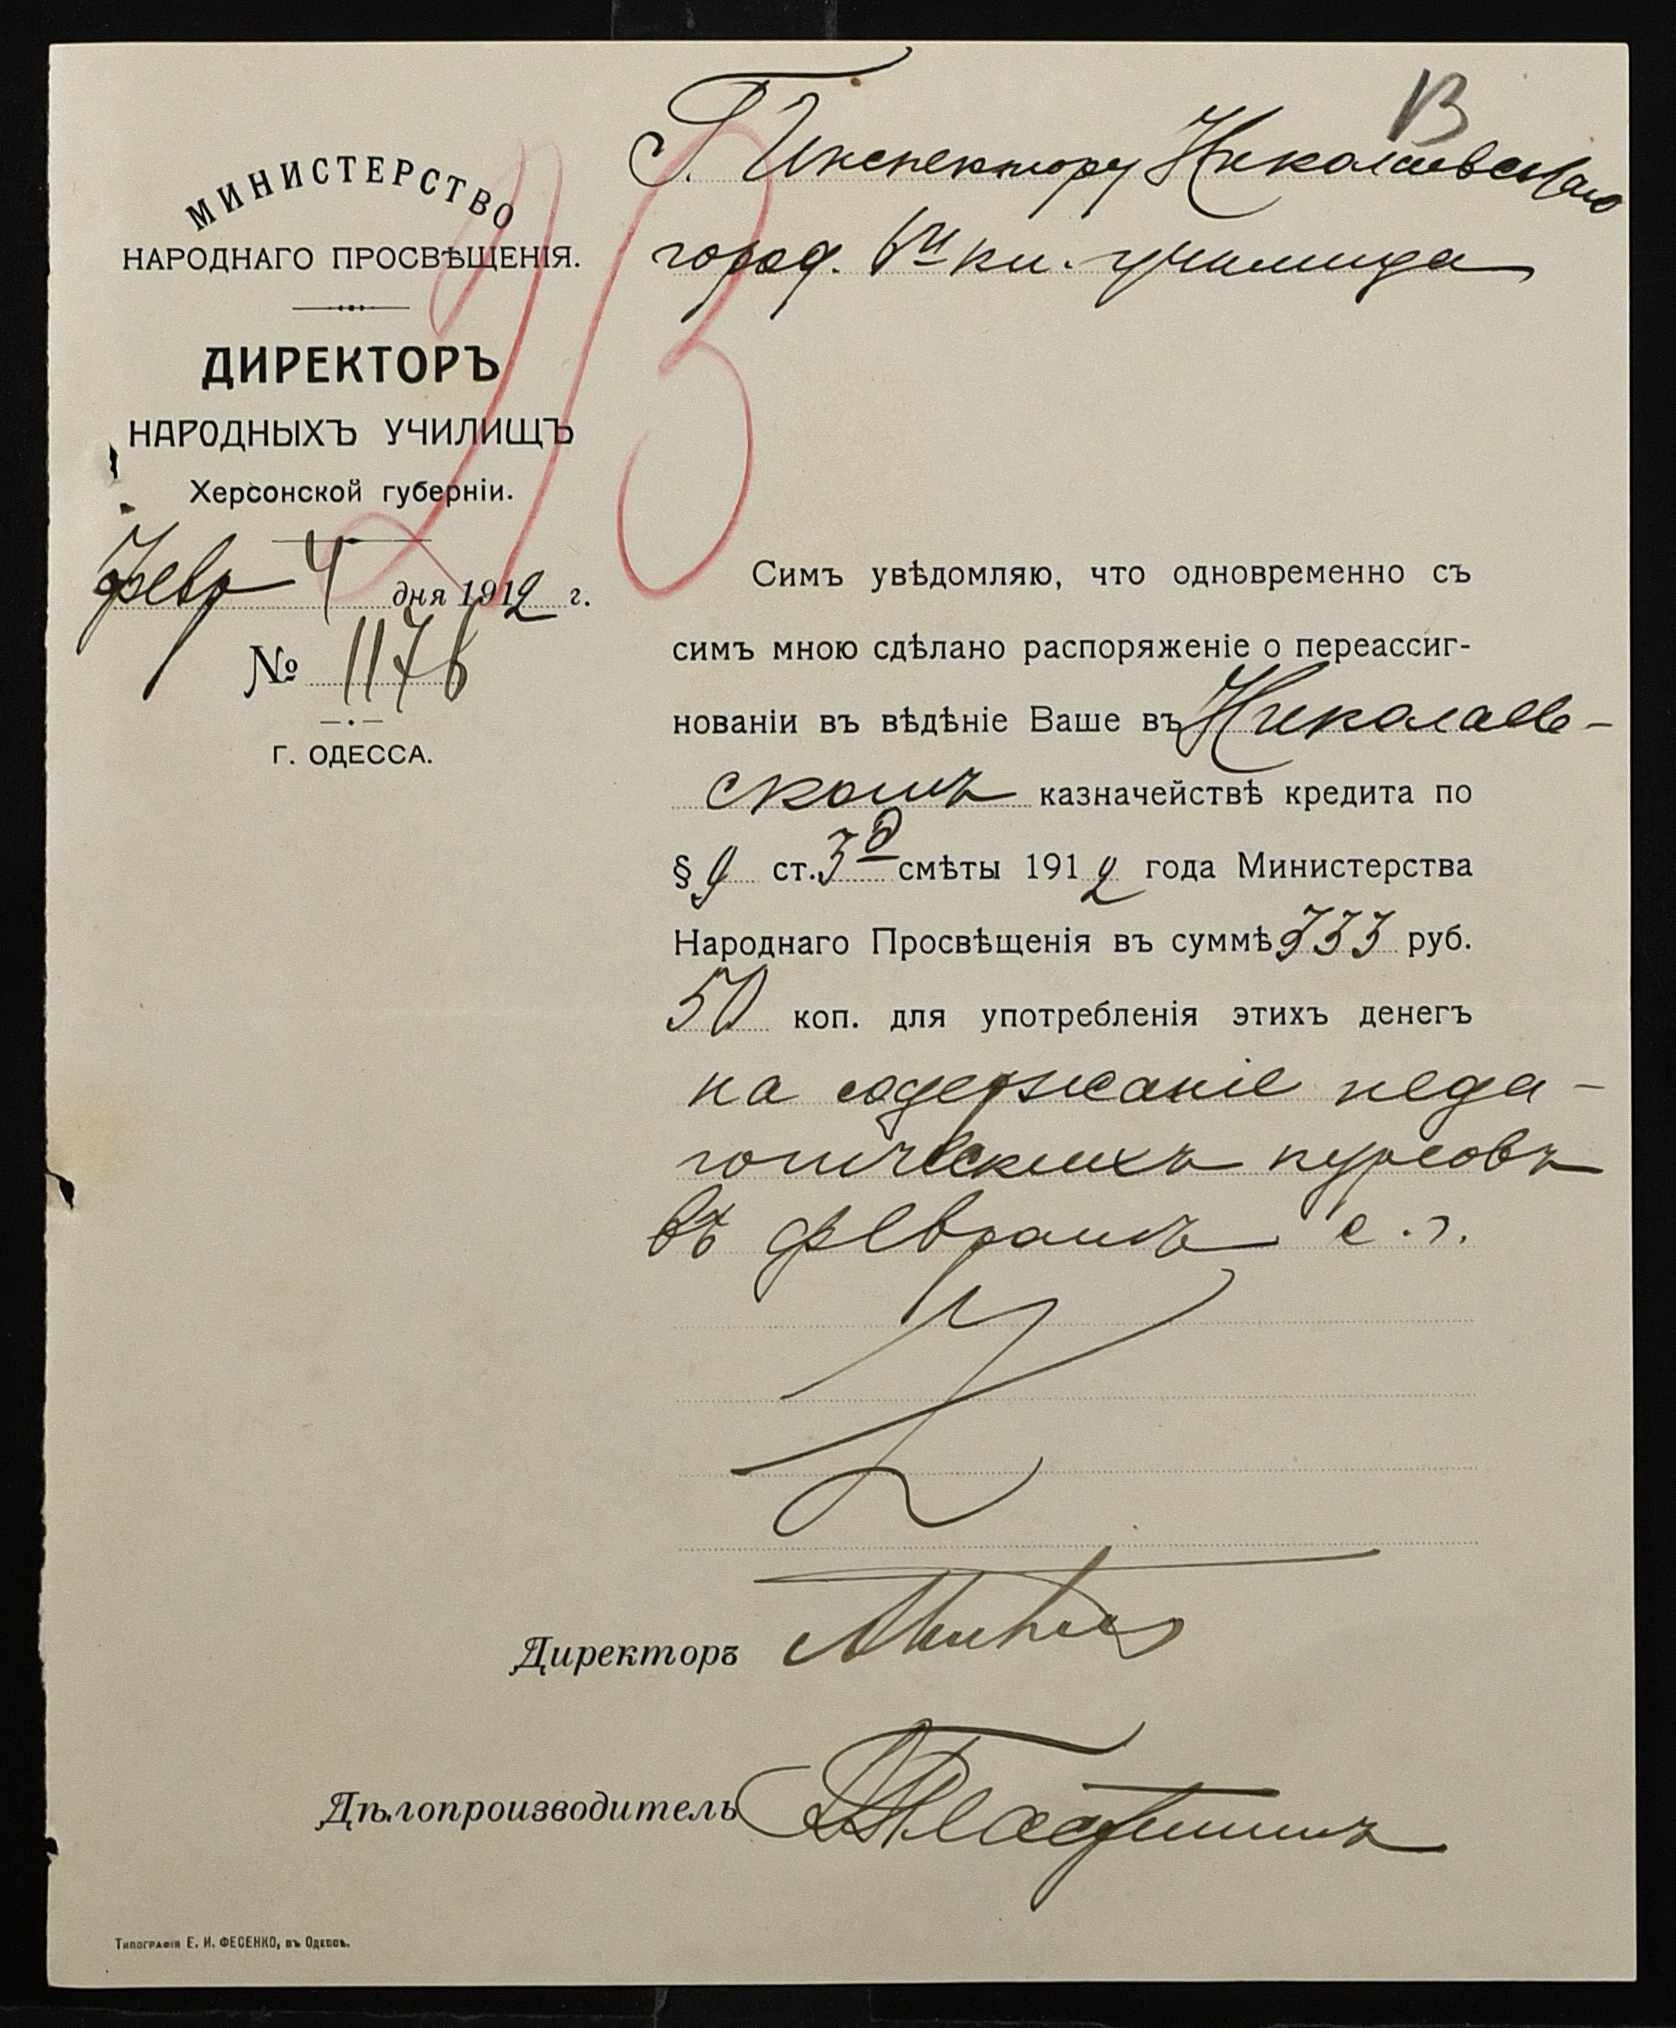 В
Г. Инспектору Николаевскаго
город. 6ти кл. училища
МИНИСТЕРСТВО
НАРОДНАГО ПРОСВѢЩЕНІЯ.
ДИРЕКТОРЪ
НАРОДНЫХЪ УЧИЛИЩЪ
Херсонской губерніи.
Февр 4 дня 1912 г.
№ 1176
Г. ОДЕССА.
213
Симъ увѣдомляю, что одновременно съ
симъ мною сдѣлано распоряженіе о переассиг-
нованіи въ вѣдѣніе Ваше въ Николаев-
скомъ казначействѣ кредита по
§ 9 ст. 3 смѣты 1912 года Министерства
Народнаго Просвѣщенія въ суммѣ 333 руб.
50 коп. для употребленія этихъ денегъ
на содержаніе педа-
гогическихъ курсовъ
въ февралѣ с. г.
Директоръ
Дѣлопроизводитель
Типографія Е. И. ФЕСЕНКО, въ Одессѣ.